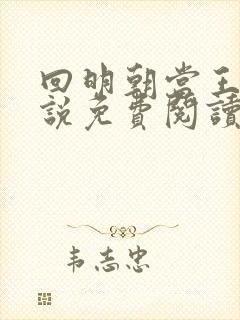 回明朝当王
說免費閱讀
韦志忠